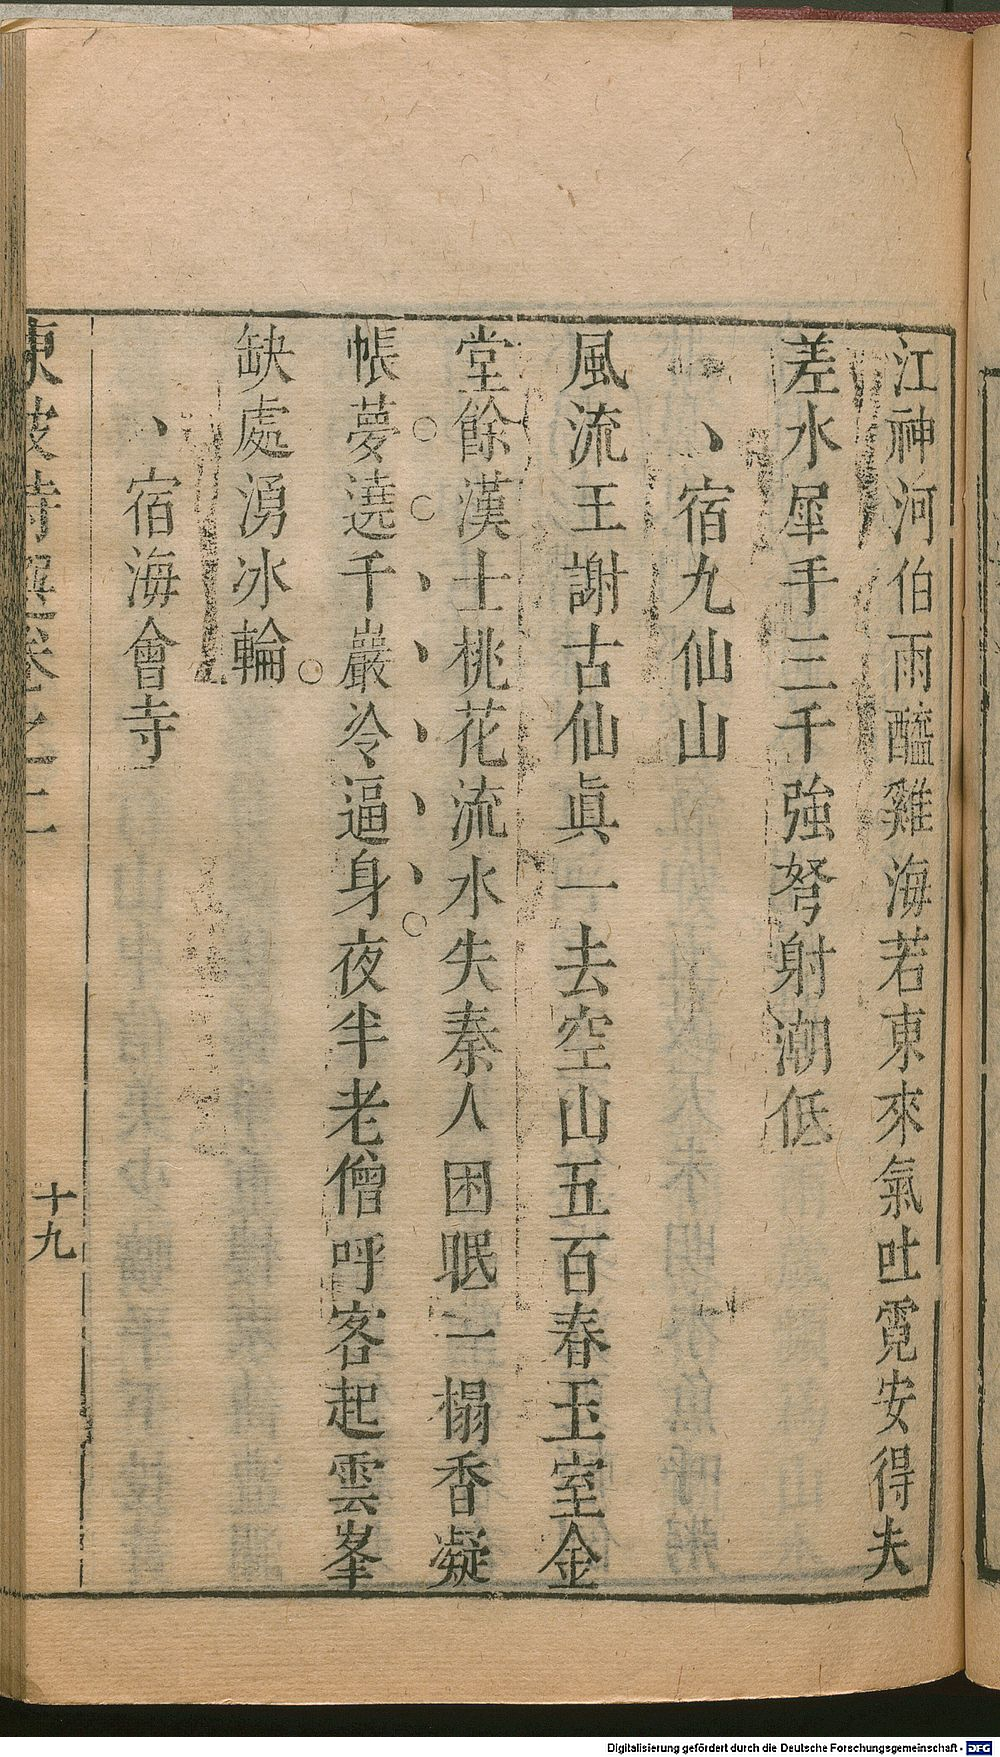 江神河伯兩醯雞海若東來氣吐霓安得夫
差水犀手三千強弩射潮低
、宿九仙山
風流王謝古仙眞一去空山五百春玉室金
堂餘漢士桃花流水失秦人困眠一榻香凝
帳夢遶千巖冷逼身夜半老僧呼客起雲峯
缺處湧冰輪
、宿海會寺
東坡詩選卷之二
十九
Digitalisierung gefördert durch die Deutsche Forschungsgemeinschaft - DFG